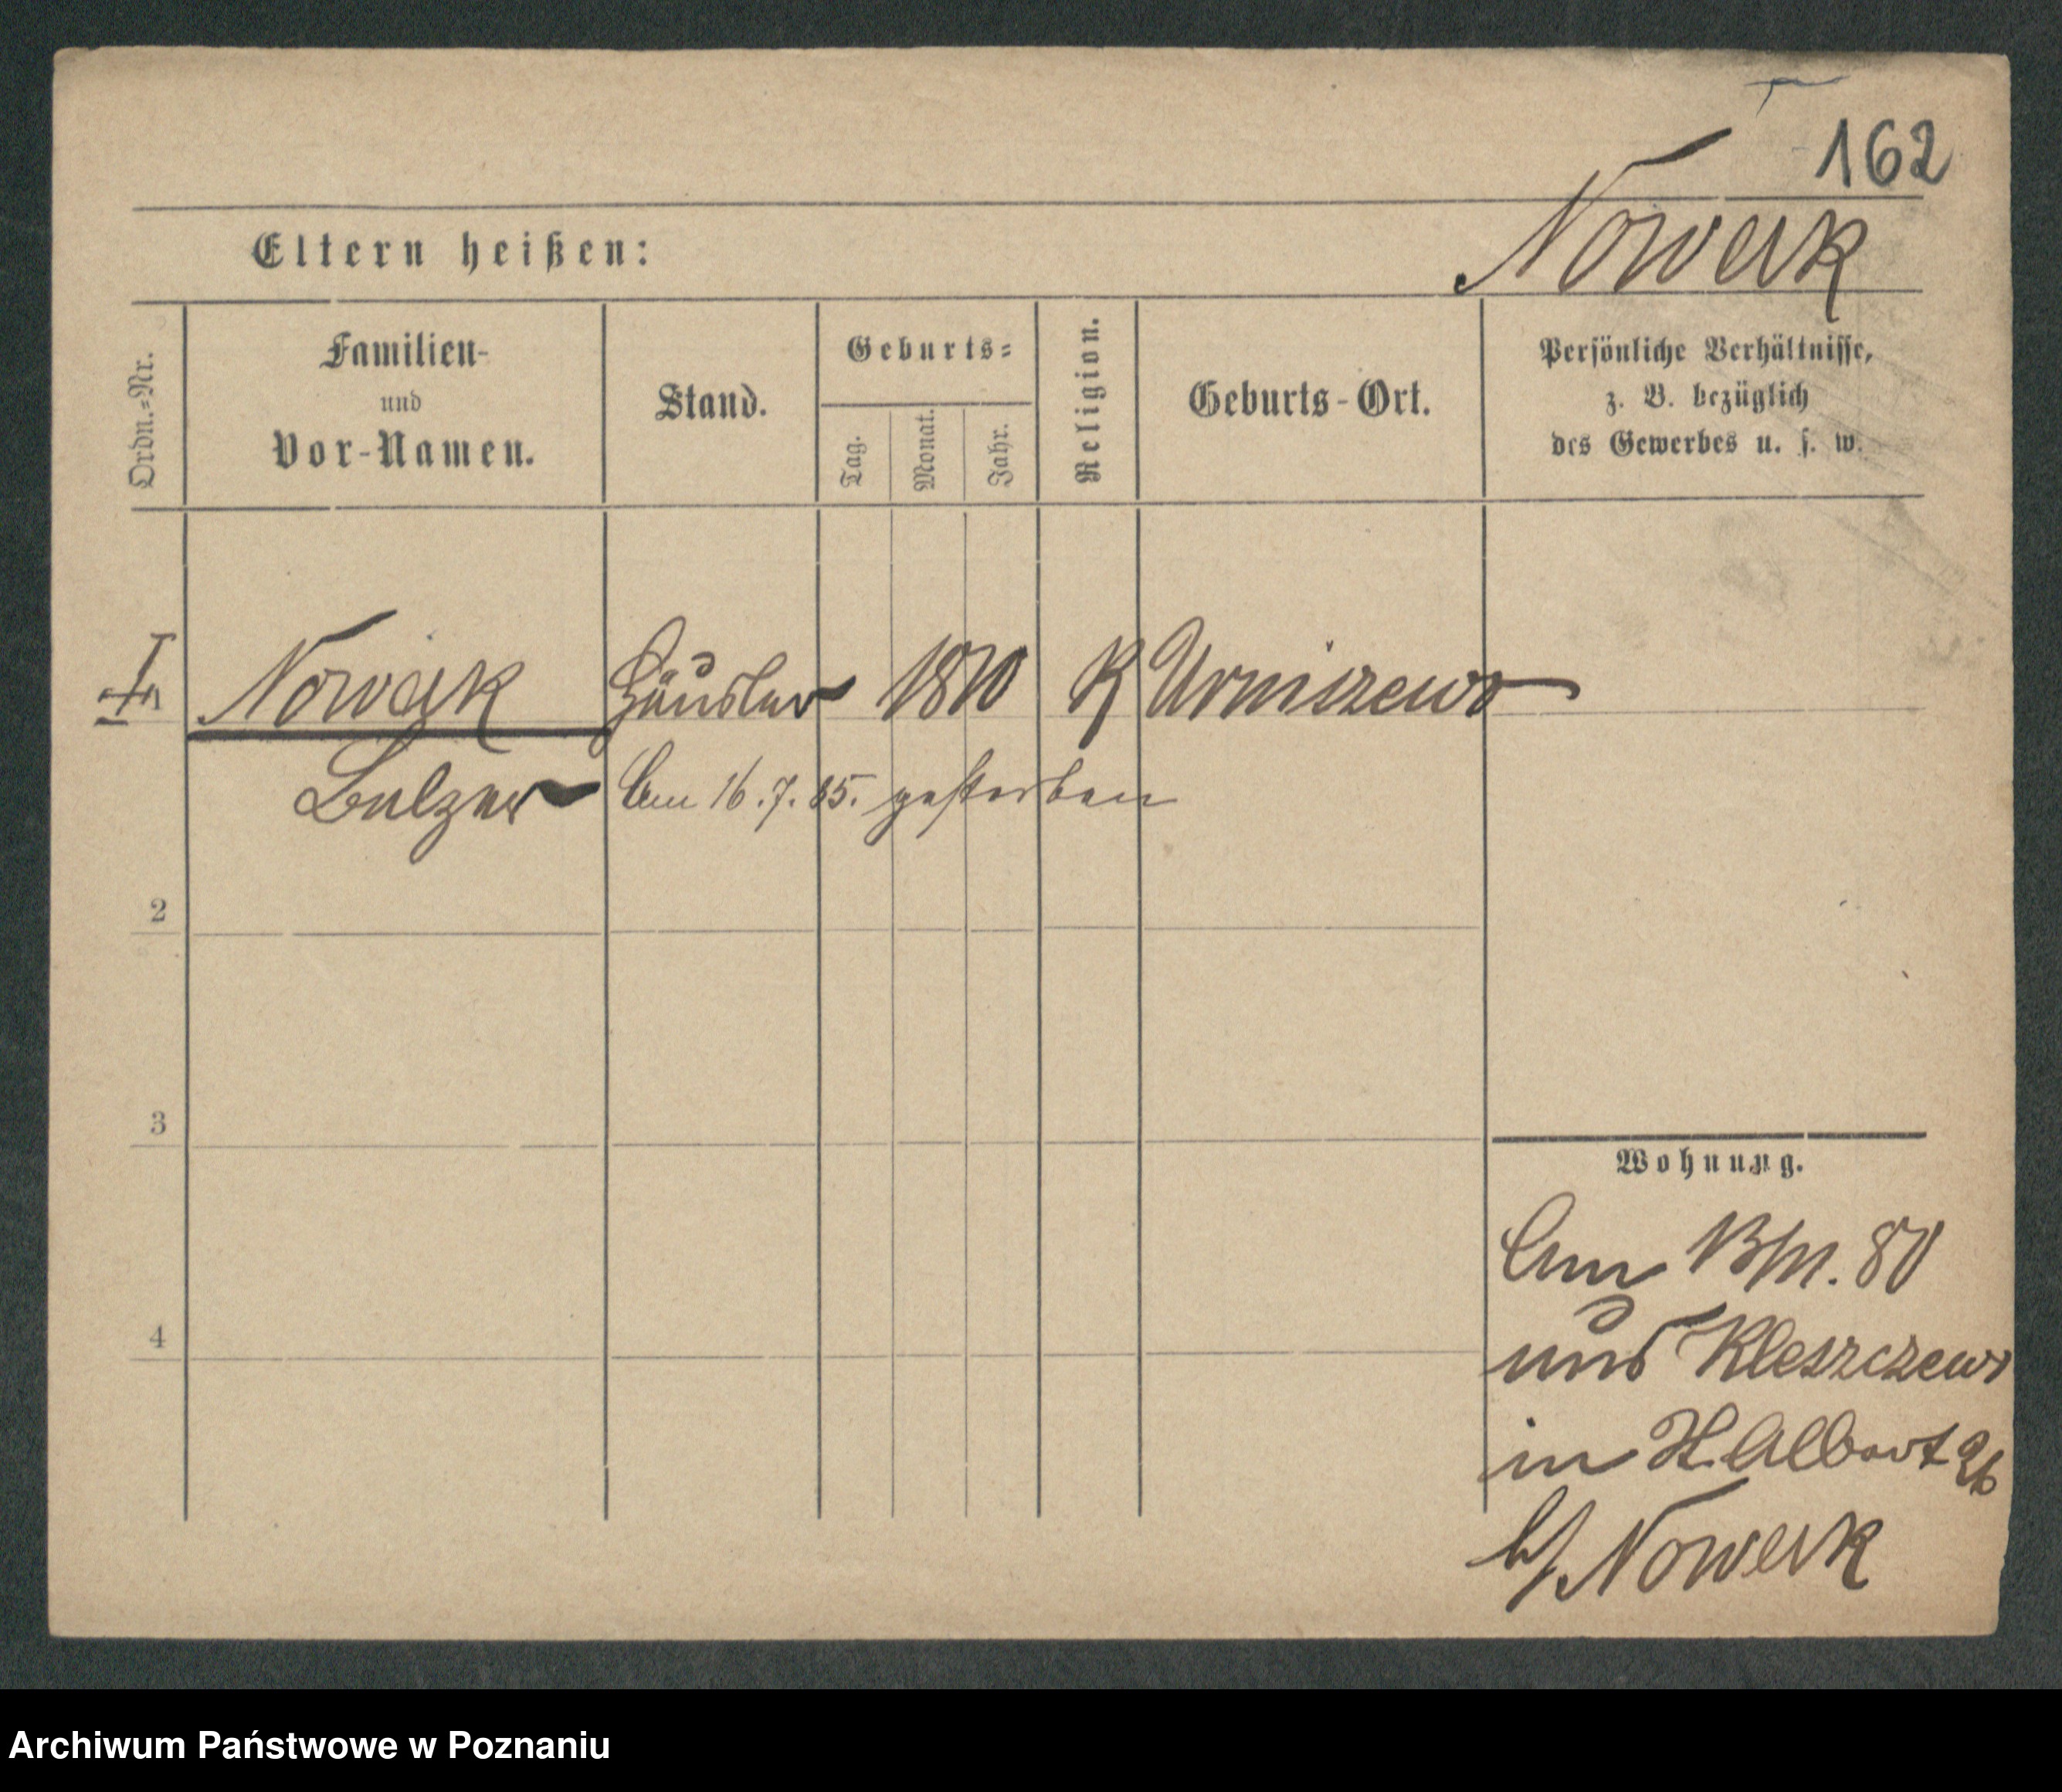 162
Nowak
Eltern heißen:
Ordn.-Nr.
Familien-
und
Vor-Namen.
Stand.
Geburts-
Tag.
Monat.
Jahr.
Religion.
Geburts-Ort.
Persönliche Verhältnisse,
z. B. bezüglich
des Gewerbes u. s. w.
Nowak Häusler 1810 K
Am 16.7.85. gestorben
2
3
4
Wohnung.
Am 80
aus Kleszczewo
in
b/ Nowak
Archiwum Państwowe w Poznaniu